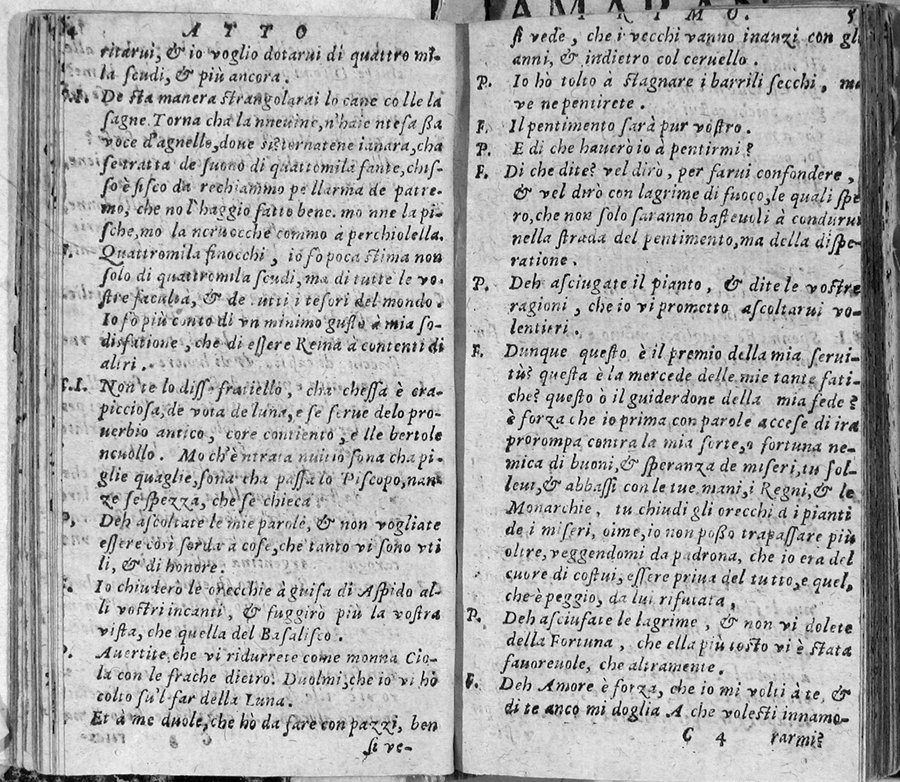 4 ATTO
ritarui, & io voglio dotarui di quattro mi-
la scudi, & più ancora.
De sta manera strangolarai lo cane co lle la
sagne. Torna cha la nneuine, n'haie ntesa ssa
voce d'agnello, doue sisternatene ianara, cha
se tratta de suono di quattomila fante, chis-
so è fisco da rechiammo pe llarma de patre-
mo, che no l'haggio fatto bene. mo nne la pi-
sche, mo la ncruocche commo à perchiolella.
Quattromila finocchi, io fo poca stima non
solo di quattromila scudi, ma di tutte le vo-
stre facultà, & de tutti i tesori del mondo.
Io fò più conto di vn minimo gusto à mia so-
disfatione, che di essere Reina à contenti di
altri.
Non te lo disse fratiello, cha chessa è cra-
picciosa, de vota de luna, e se serue delo pro-
uerbio antico, core contiento, e lle bertole
ncuollo. Mo ch'è ntrata sona cha pi-
glie quaglie, sona cha passa lo Piscopo, nan-
ze se spezza, che se chieca
P. Deh ascoltate le mie parole, & non vogliate
essere così sorda a cose, che tanto vi sono vti
li, & di honore.
Io chiuderò le orecchie à guisa di Aspido al-
li vostri incanti, & fuggirò più la vostra
vista, che quella del Basalisco.
Auertite, che vi ridurrete come monna Cio-
la con le frache dietro. Duolmi, che io vi hò
colto su'l far della Luna.
Et à me duole, che hò da fare con pazzi, ben
si ve-
5
si vede, che i vecchi vanno inanzi con gl
anni, & indietro col ceruello.
P. Io hò tolto à stagnare i barrili secchi, ma
ve ne pentirete.
F. Il pentimento sarà pur vostro.
P. E di che hauerò io à pentirmi?
F. Di che dite? vel dirò, per farui confondere,
& vel dirò con lagrime di fuoco, le quali spe
ro, che non solo saranno basteuoli à condurui
nella strada del pentimento, ma della dispe-
ratione.
P. Deh asciugate il pianto, & dite le vostre
ragioni, che io vi prometto ascoltarui vo-
lentieri.
F. Dunque questo è il premio della mia serui-
tù? questa è la mercede delle mie tante fati-
che? questo ò il guiderdone della mia fede?
è forza che io prima con parole accese di ira
prorompa contra la mia sorte, o fortuna ne-
mica di buoni, & speranza de miseri, tu sol-
leui, & abbassi con le tue mani, i Regni, & le
Monarchie, tu chiudi gli orecchi a i pianti
de i miseri, oime, io non posso trapassare più
oltre, veggendomi da padrona, che io era del
cuore di costui, essere priua del tutto, e quel,
che è peggio, da lui rifutata,
P. Deh asciufate le lagrime, & non vi dolete
della Fortuna, che ella più tosto vi è stata
fauoreuole, che altramente.
F. Deh Amore è forza, che io mi volti à te, &
di te anco mi doglia A che volesti innamo-
C 4 rarmi?